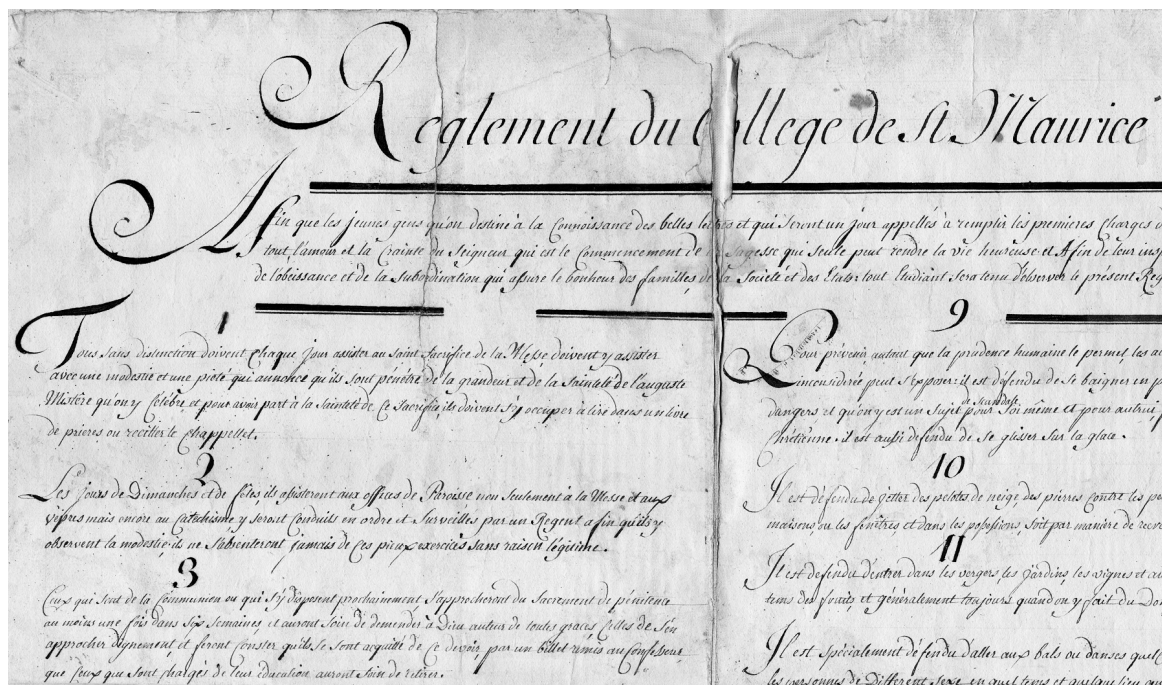 Reglement du College de St Maurice
Afin que les jeunes gens qu'on destine à la Connoissance des belles lettres et qui seront un jour appellés à remplir les premieres Charges d
tout l'amour et la Crainte du Seigneur qui est le Commencement de la Sagesse qui seule peut rendre la vie heureuse et Afin de leur insp
de l'obeissance et de la Subordination qui assure le bonheur des familles, de la Société et des Etats tout Etudiant sera tenu d'observer le présent Reg
1
Tous sans distinction doivent Chaque jour assister au saint Sacrifice de la Messe doivent y assister
avec une modestie et une pieté qui annonce qu'ils sont pénétré de la grandeur et de la Sainteté de l'auguste
Mistère qu'on y Celébre, et pour avoir part à la Sainteté de Ce Sacrifice ils doivent s'y occuper à lire dans un livre
de prieres ou reciter le Chappellet.
2
Les jours de Dimanches et de fêtes ils assisteront aux offices de Paroisse non seulement à la Messe et aux
vêpres mais encore au Catechisme y seront Conduits en ordre et Surveillés par un Regent afin qu'ils y
observent la modestie ils ne s'absenteront jamais de Ces pieux exercices sans raison légitime.
3
Ceux qui sont de la Communion ou qui s'y disposent prochainement s'approcheront du Sacrement de pénitence
au moins une fois dans Six Semaines, et auront Soin de demander à Dieu auteur de toutes graces Celles de s'en
approcher dignement et feront Conster qu'ils se sont acquitté de Ce devoir, par un billet remis au Confesseur
que Ceux qui sont Chargés de leur education auront Soin de retirer.
9
Pour prévenir autant que la prudence humaine le permet les ac
inconsidérée peut s'exposer: il est défendu de se baigner en p
dangers, et qu'on y est un Sujet de scandale pour Soi même et pour autrui,
Chrétienne. il est aussi defendu de se glisser sur la glace.
10
Il est défendu de jetter des pelotes de neige, des pierres Contre les pe
maisons, ou les fenêtres, et dans les possessions, Soit par manière de recre
11
Il est defendu d'entrer dans les vergers les jardins les vignes et au
tems des fruits, et généralement toujours quand on y fait du Do
Il est spécialement défendu d'aller aux bals ou danses quelc
les personnes de Different Sexe en quel tems et quelque lieu que